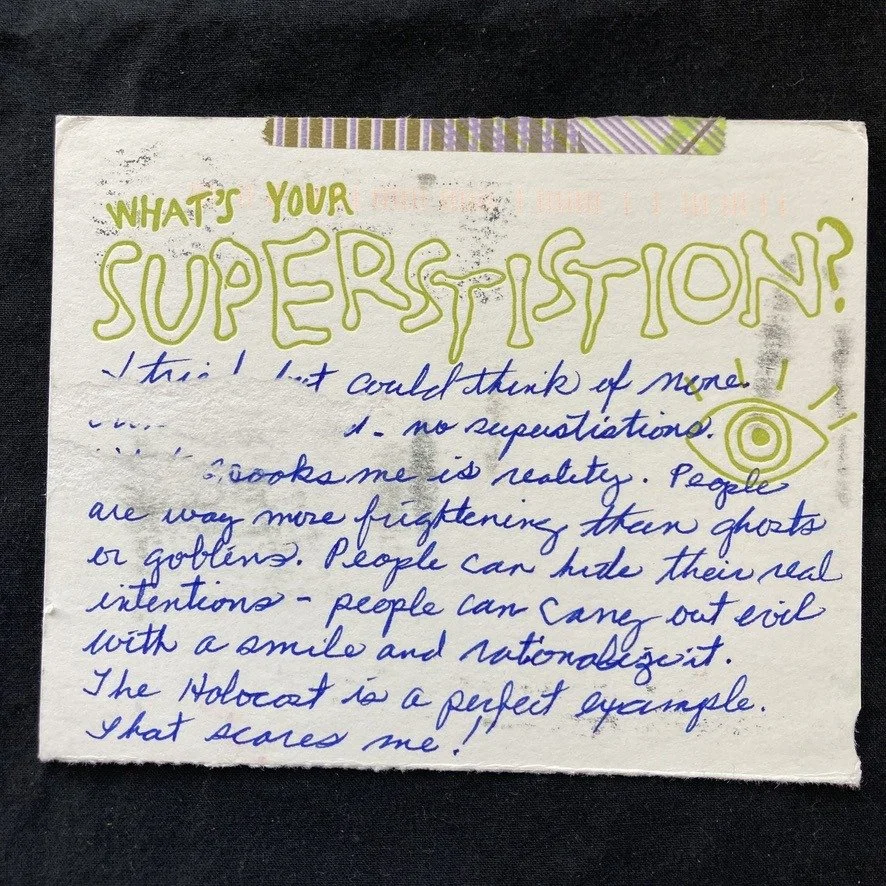 WHAT'S YOUR
SUPERSTISTION?
I could think of none.
no superstistions.
spooks me is reality. People
are way more frightening than ghosts
or goblins. People can hide their real
intentions - people can carry out evil
with a smile and rationalize it.
The Holocost is a perfect example.
That scares me!